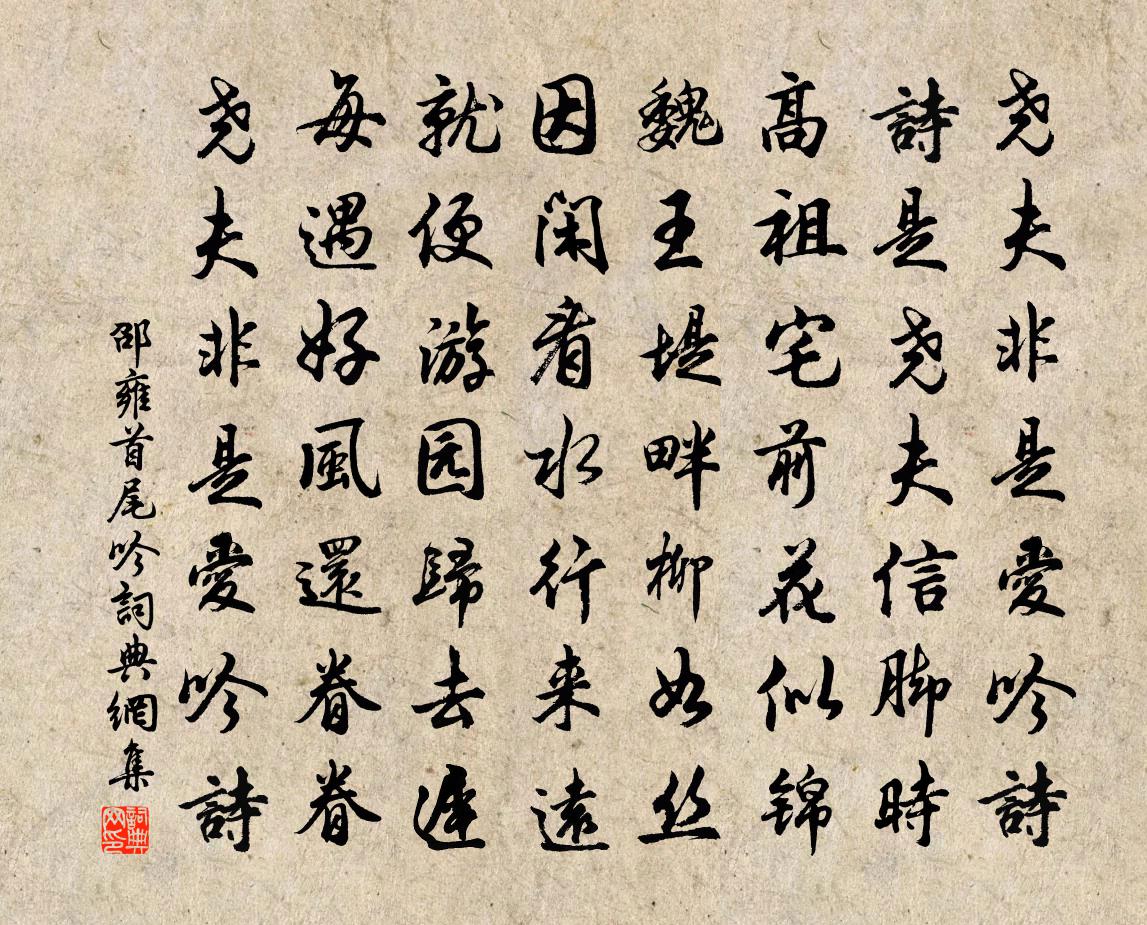 尧夫非是愛吟詩
詩是尧夫信脚時
高祖宅前花似锦
魏王堤畔柳如丝
因閑看水行来遠
就便游园歸去遲
每遇好風還眷眷
尧夫非是愛吟詩
邵雍首尾吟詞典網集
詞典網印